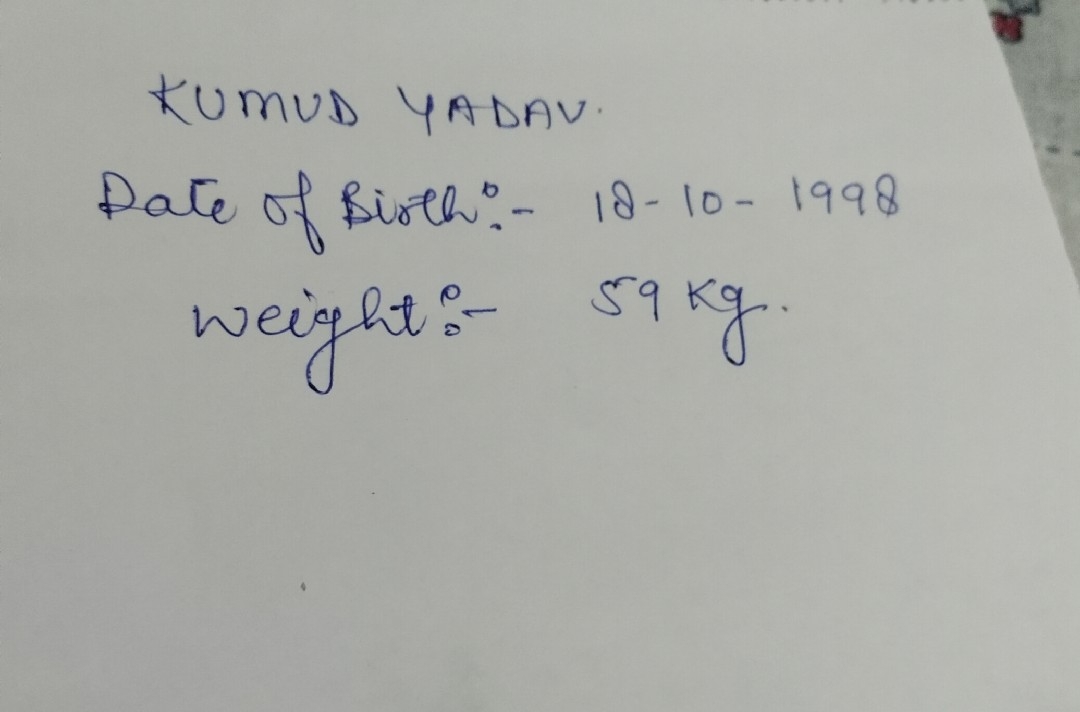 KUMUD YADAV.
Date of Birth:- 18-10-1998
Weight:- 59 Kg.